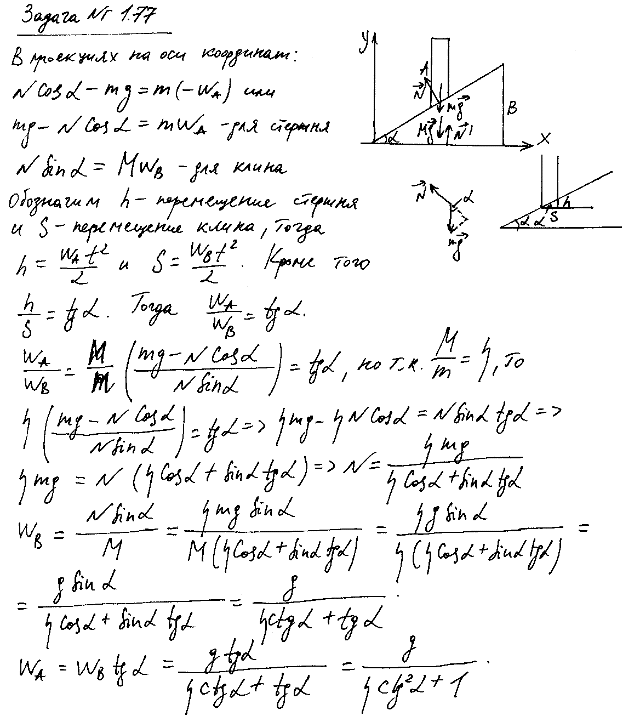 Задача № 1.77
В проекциях на оси координат:
N Cosα - mg = m(-W_A) или
mg - N Cosα = mW_A - для стержня
N Sinα = MW_B - для клина
Обозначим h - перемещение стержня
и S - перемещение клина, тогда
h = W_A t²/2 и S = W_B t²/2. Кроме того
h/S = tgα. Тогда W_A/W_B = tgα.
W_A/W_B = M/m ((mg - N Cosα)/(N Sinα)) = tgα, но т.к. M/m = η, то
η((mg - N Cosα)/(N Sinα)) = tgα => ηmg - ηN Cosα = N Sinα tgα =>
ηmg = N(ηCosα + Sinα tgα) => N = ηmg/(ηCosα + Sinα tgα)
W_B = N Sinα/M = ηmg Sinα/(M(ηCosα + Sinα tgα)) = ηg Sinα/(η(ηCosα + Sinα tgα)) =
= g Sinα/(ηCosα + Sinα tgα) = g/(ηctgα + tgα).
W_A = W_B tgα = g tgα/(ηctgα + tgα) = g/(ηctg²α + 1).
y
A
N
mg
B
Mg
N'
α
X
N
α
mg
S
h
α
α